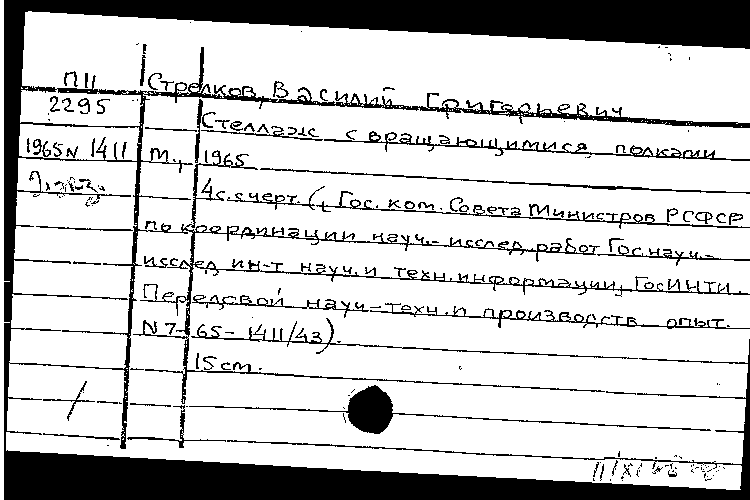 П11 Стрелков, Василий Григорьевич
2295 Стеллаж с вращающимися полками
1965 N 1411 М., 1965
4с. счерт. (, Гос. ком. Совета Министров РСФСР
по координации науч.- исслед. работ Гос. науч.-
исслед ин-т науч. и техн. информации, ГосИНТИ.
Передовой науч-техн. и производств опыт.
N 7- 65- 1411/43).
15 cm.